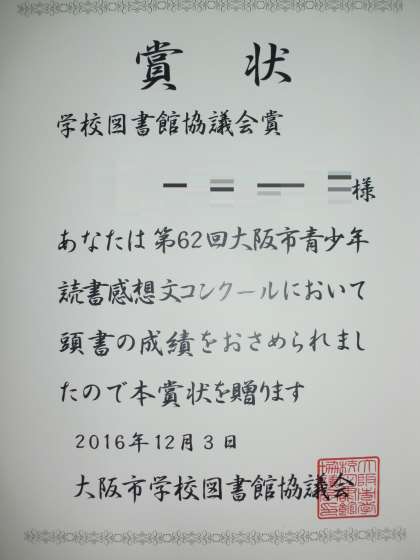 賞状
学校図書館協議会賞
様
あなたは第62回大阪市青少年
読書感想文コンクールにおいて
頭書の成績をおさめられまし
たので本賞状を贈ります
2016年12月3日
大阪市学校図書館協議会